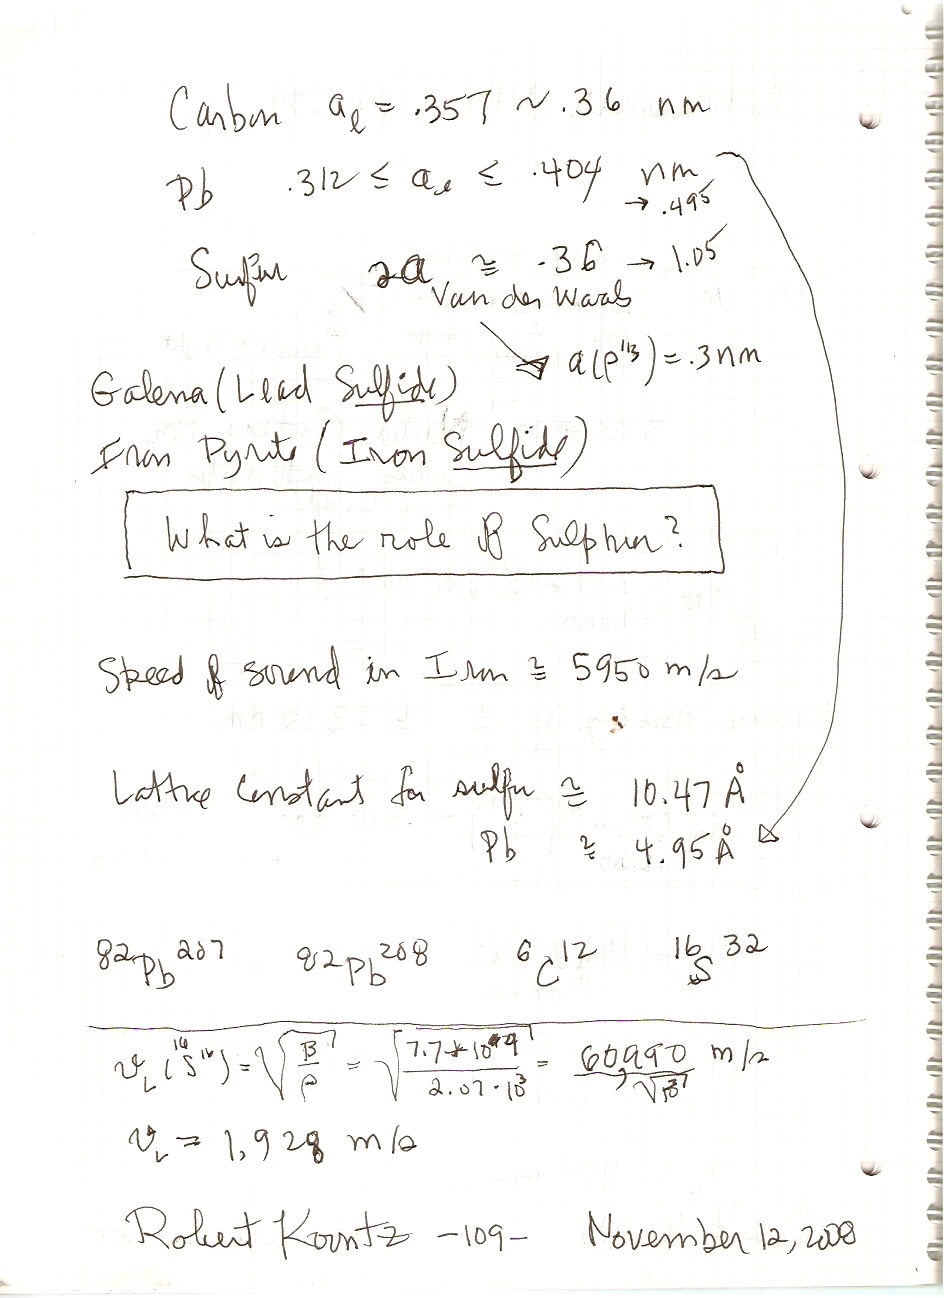 Carbon aₗ = .357 ~ .36 nm
Pb .312 ≤ aₗ ≤ .404 nm
→ .495
Sulfur 2a ≅ .36 → 1.05
Van der Waals
a(ρ^1/3) = .3 nm
Galena (Lead Sulfide)
Iron Pyrite (Iron Sulfide)
What is the role of Sulphur?
Speed of sound in Iron ≅ 5950 m/s
Lattice Constant for sulfur ≅ 10.47 Å
Pb ≅ 4.95 Å
82 Pb 207 82 Pb 208 6 C 12 16 S 32
v_L (16 S 16) = √(B/ρ) = √(7.7 * 10^9 / 2.07 · 10^3) = 60,990 / √10^3 m/s
v_L = 1,928 m/s
Robert Koontz -109- November 12, 2008